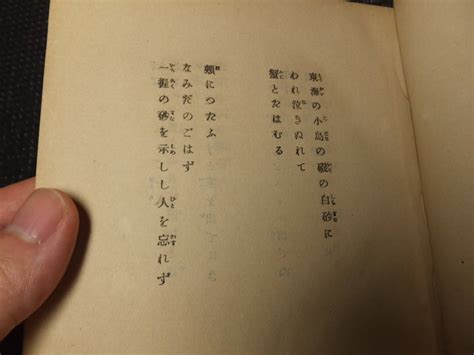 東海の小島の磯の白砂に
われ泣きぬれて
蟹とたはむる
頬につたふ
なみだのごはず
一握の砂を示しし人を忘れず